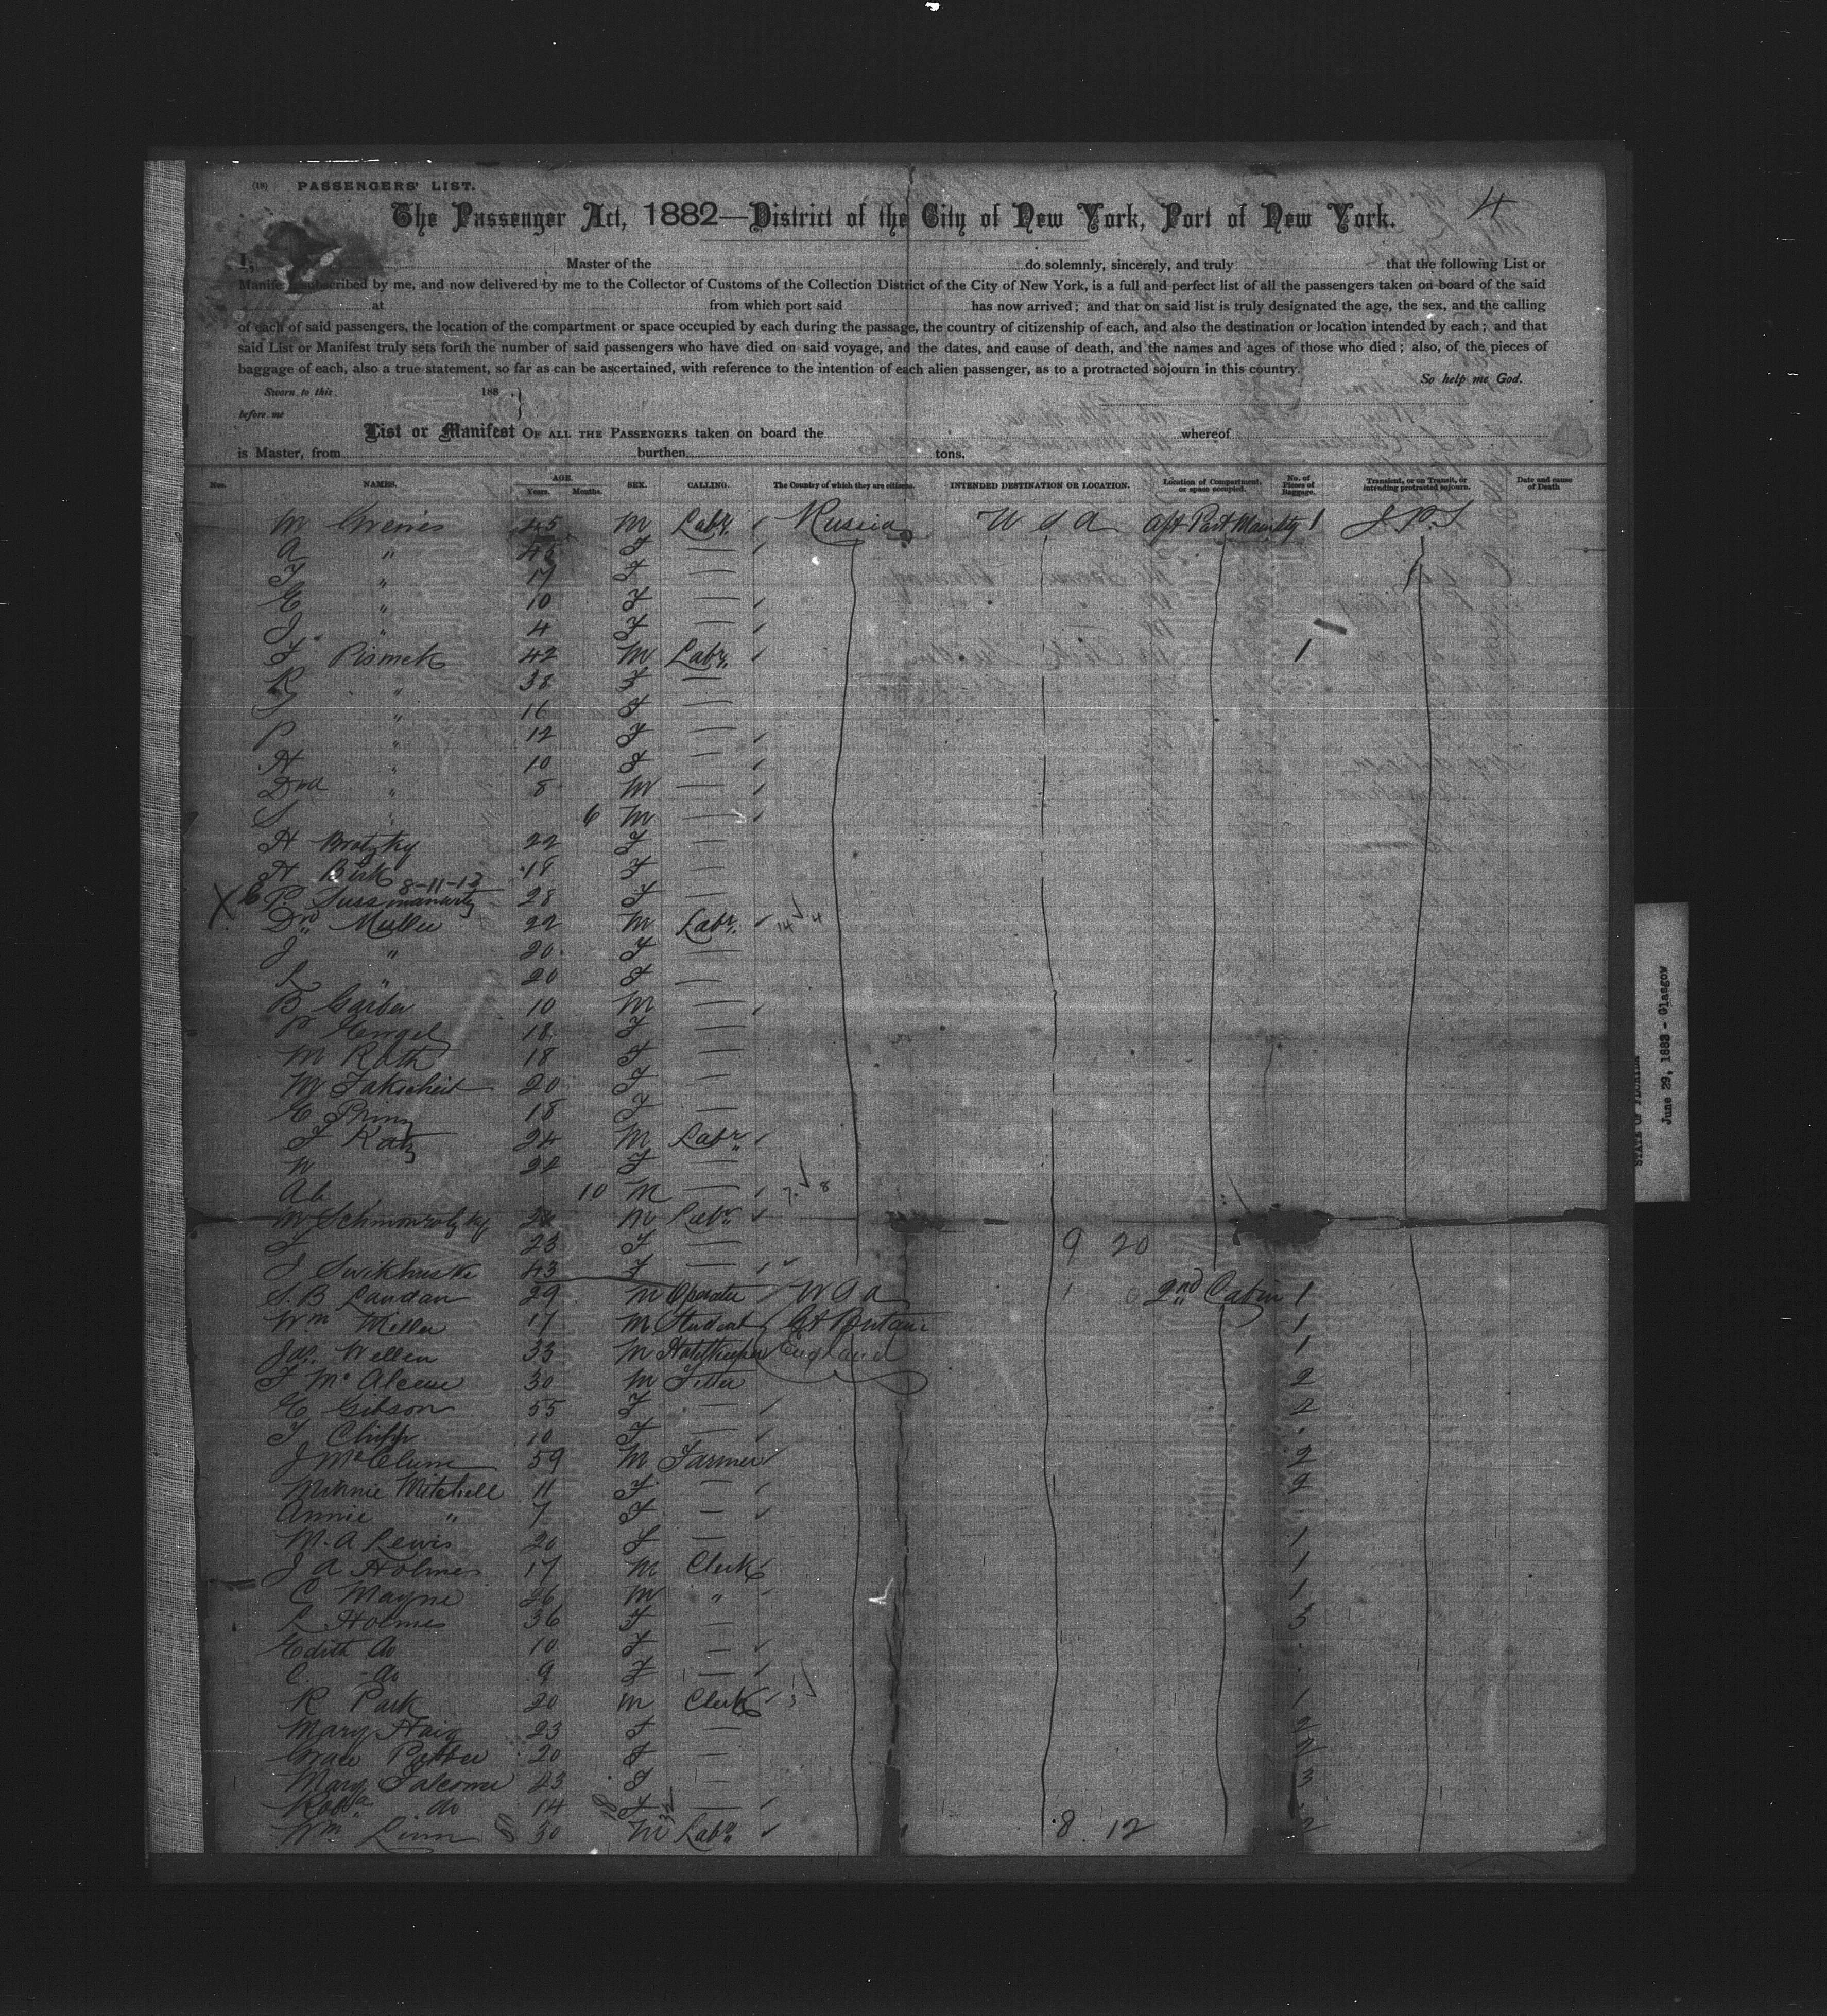 (19) PASSENGERS' LIST.
4
The Passenger Act, 1882—District of the City of New York, Port of New York.
I, Master of the do solemnly, sincerely, and truly that the following List or
Manifest subscribed by me, and now delivered by me to the Collector of Customs of the Collection District of the City of New York, is a full and perfect list of all the passengers taken on board of the said
at from which port said has now arrived; and that on said list is truly designated the age, the sex, and the calling
of each of said passengers, the location of the compartment or space occupied by each during the passage, the country of citizenship of each, and also the destination or location intended by each; and that
said List or Manifest truly sets forth the number of said passengers who have died on said voyage, and the dates, and cause of death, and the names and ages of those who died; also, of the pieces of
baggage of each, also a true statement, so far as can be ascertained, with reference to the intention of each alien passenger, as to a protracted sojourn in this country.
So help me God.
Sworn to this 188
before me
List or Manifest OF ALL THE PASSENGERS taken on board the whereof
is Master, from burthen tons.
Nos. NAMES. AGE. Years. Months. SEX. CALLING. The Country of which they are citizens. INTENDED DESTINATION OR LOCATION. Location of Compartment, or space occupied. No. of Pieces of Baggage. Transient, or on Transit, or intending protracted sojourn. Date and cause of Death
M 45 M Labr. Russia U S A Aft Part 1
A " 45 F —
" 17 F —
E " 10 F —
J " 4 F —
F Pismek 42 M Labr. 1
R " 38 F —
" 16 F —
P " 12 F —
H " 10 F —
Dvd " 8 M —
S " 6 M —
H Brotzky 22 F —
H Birk 18 F —
8-11-13
X P Sussmanwitz 28 F —
Dd Muller 22 M Labr. 14 4
J " 20 F —
L " 20 F —
B Garber 10 M —
P Engel 18 F —
M Roth 18 F —
M Jakscheit 20 F —
E Prinz 18 F —
F Katz 24 M Labr
N 22 F —
Ab 10 M — 7 8
M 24 M Labr
23 F — 9 20
J 43 F
S. B Landan 29 M Operator U S A 2nd Cabin 1
Wm Miller 17 M Student Gt Britain 1
Jas. Wellen 33 M Hotelkeeper England 1
F 30 M Fitter 2
E Gibson 55 F — 2
10 F —
J McClure 59 M Farmer 2
Minnie Mitchell 11 F — 2
Annie " 7 F —
M. A Lewis 20 F — 1
J A Holmes 17 M Clerk 1
C Mayne 26 M " 1
L Holmes 36 F — 3
Edith do 10 F —
C. do 9 F —
R Park 20 M Clerk 1
Mary Haig 23 F — 2
Grace 20 F — 2
Mary Falconer 43 F — 3
do 14 F —
Wm Linn 30 M Labr. 8 12 2
June 29, 1883 - Glasgow
STATE OF FLORIDA